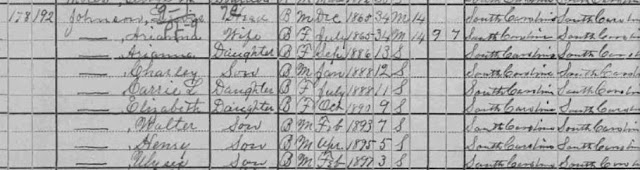 178 192 Johnson, Head B M Dec 1865 34 M 14 South Carolina South Carolina
— Arianna Wife B F July 1865 34 M 14 9 7 South Carolina South Carolina
— Arianna Daughter B F 1886 13 S South Carolina South Carolina
— Charley Son B M Jan 1888 12 S South Carolina South Carolina
— Carrie L Daughter B F July 1888 11 S South Carolina South Carolina
— Elizabeth Daughter B F Oct 1890 9 S South Carolina South Carolina
— Walter Son B M Feb 1893 7 S South Carolina South Carolina
— Henry Son B M Apr 1895 5 S South Carolina South Carolina
— Son B M Feb 1897 3 S South Carolina South Carolina